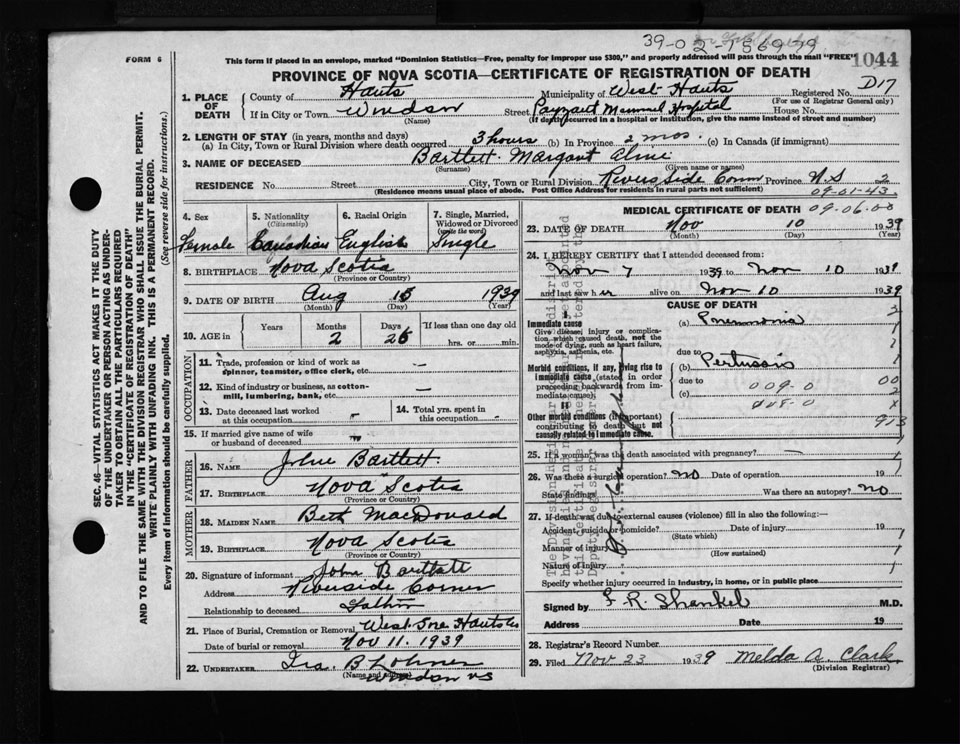 39-02-156979
FORM 6
This form if placed in an envelope, marked "Dominion Statistics—Free, penalty for improper use $300," and properly addressed will pass through the mail "FREE"
1044
PROVINCE OF NOVA SCOTIA—CERTIFICATE OF REGISTRATION OF DEATH
1. PLACE OF DEATH
County of Hants
Municipality of West Hants
Registered No. D17
(For use of Registrar General only)
If in City or Town Windsor
(Name)
Street Payzant Memorial Hospital
House No.
(If death occurred in a hospital or institution, give the name instead of street and number)
2. LENGTH OF STAY (in years, months and days)
(a) In City, Town or Rural Division where death occurred 3 hours (b) In Province 2 mos. (c) In Canada (if immigrant)
3. NAME OF DECEASED Bartlett Margaret
(Surname) (Given name or names)
RESIDENCE No. Street City, Town or Rural Division Riverside Corner Province N.S. 2
(Residence means usual place of abode. Post Office Address for residents in rural parts not sufficient) 09-01-43
4. Sex
Female
5. Nationality
(Citizenship)
Canadian
6. Racial Origin
English
7. Single, Married, Widowed or Divorced
(write the word)
Single
8. BIRTHPLACE Nova Scotia
(Province or Country)
9. DATE OF BIRTH Aug 15 1939
(Month) (Day) (Year)
10. AGE in
Years Months Days If less than one day old
2 26 hrs. or min.
OCCUPATION
11. Trade, profession or kind of work as spinner, teamster, office clerk, etc. —
12. Kind of industry or business, as cotton-mill, lumbering, bank, etc. —
13. Date deceased last worked at this occupation
14. Total yrs. spent in this occupation -
15. If married give name of wife or husband of deceased
FATHER
16. NAME John Bartlett
17. BIRTHPLACE Nova Scotia
(Province or Country)
MOTHER
18. MAIDEN NAME Beth MacDonald
19. BIRTHPLACE Nova Scotia
(Province or Country)
20. Signature of informant John Bartlett
Address Riverside Corner
Relationship to deceased Father
21. Place of Burial, Cremation or Removal West Gore Hants Co
Date of burial or removal Nov 11. 1939
22. UNDERTAKER Ira. B Lohnes
(Name and address)
Windsor NS
MEDICAL CERTIFICATE OF DEATH 09.06.00
23. DATE OF DEATH Nov 10 1939
(Month) (Day) (Year)
24. I HEREBY CERTIFY that I attended deceased from:
Nov 7 1939 to Nov 10 1939
and last saw her alive on Nov 10 1939
CAUSE OF DEATH
Immediate cause
Give disease, injury or complication which caused death, not the mode of dying, such as heart failure, asphyxia, asthenia, etc.
(a) Pneumonia
due to
Morbid conditions, if any, giving rise to immediate cause (stated in order proceeding backwards from immediate cause).
(b) Pertussis
due to 009-0
(c)
Other morbid conditions (if important) contributing to death but not causally related to immediate cause.
25. If a woman, was the death associated with pregnancy? —
26. Was there a surgical operation? no Date of operation 19
State findings Was there an autopsy? no
27. If death was due to external causes (violence) fill in also the following:—
Accident, suicide or homicide? Date of injury 19
(State which)
Manner of injury
(How sustained)
Nature of injury
Specify whether injury occurred in industry, in home, or in public place
Signed by F. R. Shankel M.D.
Address Date 19
28. Registrar's Record Number
29. Filed Nov 23 1939 Melda A. Clark
(Division Registrar)
SEC. 46—VITAL STATISTICS ACT MAKES IT THE DUTY
OF THE UNDERTAKER OR PERSON ACTING AS UNDER-
TAKER TO OBTAIN ALL THE PARTICULARS REQUIRED
IN THE "CERTIFICATE OF REGISTRATION OF DEATH"
AND TO FILE THE SAME WITH THE DIVISION REGISTRAR WHO SHALL ISSUE THE BURIAL PERMIT.
WRITE PLAINLY WITH UNFADING INK. THIS IS A PERMANENT RECORD.
Every item of information should be carefully supplied. (See reverse side for instructions.)